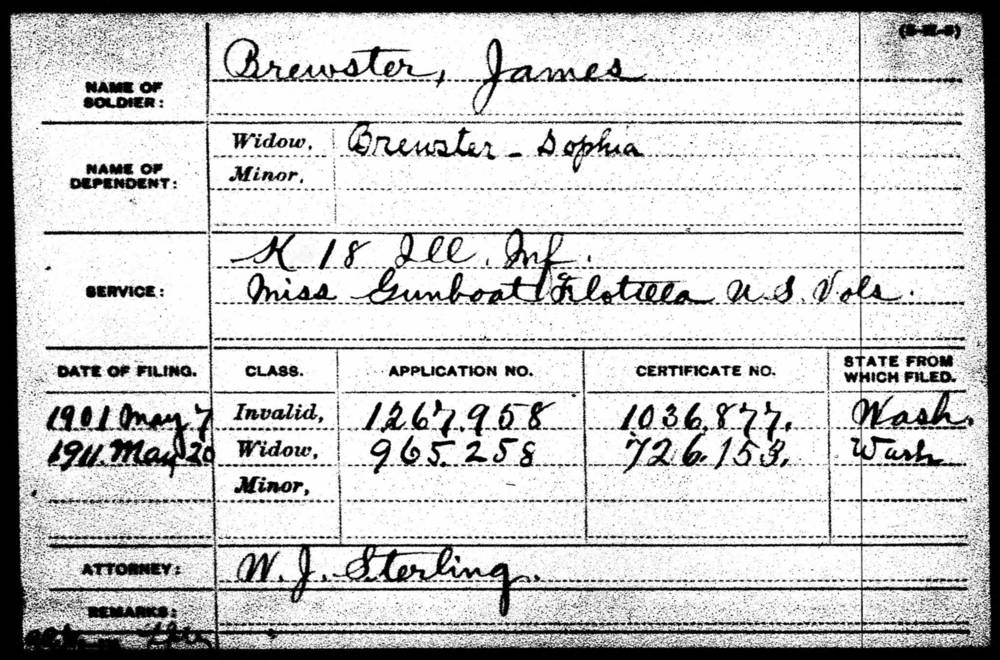 NAME OF SOLDIER: Brewster, James
NAME OF DEPENDENT: Widow, Brewster - Sophia
Minor,
SERVICE: K 18 Ill. Inf.
Miss Gunboat Flotilla U.S. Vols.
DATE OF FILING. CLASS. APPLICATION NO. CERTIFICATE NO. STATE FROM WHICH FILED.
1901 May 7 Invalid, 1267.958 1036.877. Wash.
1911. May 20 Widow, 965.258 726.153. Wash
Minor,
ATTORNEY: W. J. Sterling.
REMARKS: